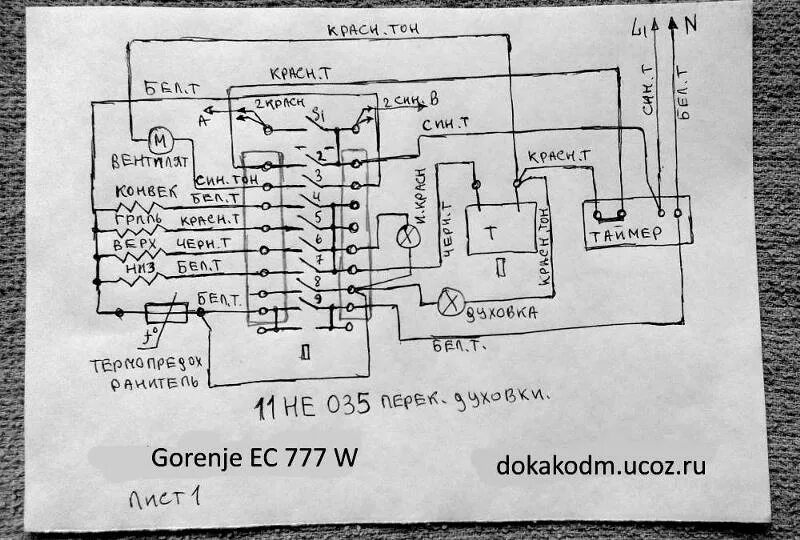 КРАСН. ТОН
L1 N
КРАСН.Т
БЕЛ.Т
2 КРАСН
2 СИН.В
А
S1
СИН.Т
БЕЛ.Т
СИН.Т
М
ВЕНТИЛЯТ
2
КРАСН.Т
СИН.ТОН
3
КОНВЕК
БЕЛ.Т
4
И.КРАСН
ЧЕРН.Т
КРАСН.ТОН
ГРПЛЬ
КРАСН.Т
5
Т
ТАЙМЕР
ВЕРХ
ЧЕРН.Т
6
НИЗ
БЕЛ.Т
7
П
8
БЕЛ.Т.
9
ДУХОВКА
t°
БЕЛ.Т.
ТЕРМОПРЕДОХ
РАНИТЕЛЬ
П
11 НЕ 035 ПЕРЕК. ДУХОВКИ.
Gorenje EC 777 W
dokakodm.ucoz.ru
ЛИСТ 1